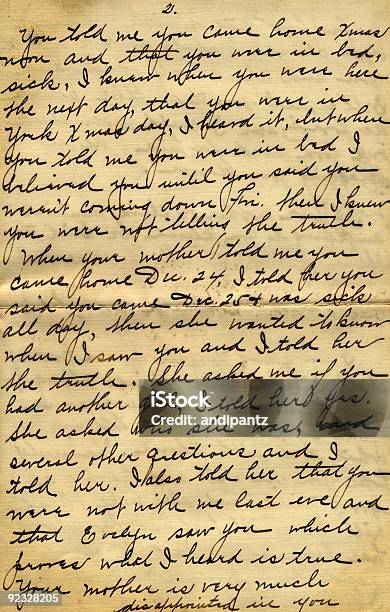 2.
You told me you came home Xmas
noon and that you were in bed,
sick, I knew when you were here
the next day, that you were in
York Xmas day, I heard it, but when
you told me you were in bed I
believed you until you said you
weren't coming down Fri. then I knew
you were not telling the truth.
When your mother told me you
came home Dec. 24, I told her you
said you came Dec. 25 & was sick
all day, then she wanted to know
when I saw you and I told her
the truth. She asked me if you
had another I told her yes.
iStock
Credit: andipantz
She asked who she was, and
several other questions and I
told her. I also told her that you
were not with me last eve and
that Evelyn saw you which
proves what I heard is true.
Your mother is very much
disappointed in you
92328205